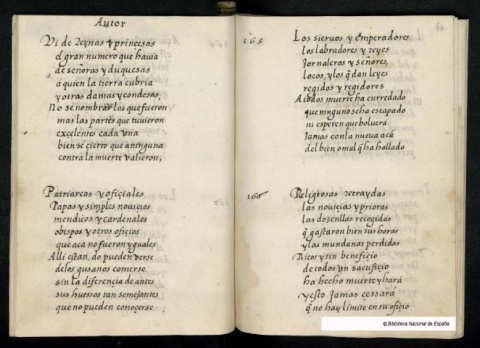 Autor
Vi de Reynas y princesas
el gran numero que hauia
de señoras y duquesas
a quien la tierra cubria
y otras damas y condesas,
No se nombrar las que fueron
mas las partes que tuuieron
excelente cada vna
bien se cierto que a ninguna
contra la muerte valieron,
Patriarcas y officiales
Papas y simples nouicios
mendicos y cardenales
obispos y otros oficios
que aca no fueron yguales
Alli estan, do pueden verse
de los gusanos comerse
sin la diferencia de antes
sus huessos tan semejantes
que no pueden conocerse
165
Los sieruos y emperadores
los labradores y reyes
Jornaleros y señores
locos, y los q̃ dan leyes
regidos y regidores
A todos muerte ha enrredado
que ninguno se ha escapado
ni esperen que boluera
Jamas con la nueua aca
del bien o mal q̃ ha hallado
166
Religiosas retraydas
las nouicias y prioras
las doncellas recogidas
q̃ gastaron bien sus horas
y las mundanas perdidas
Ricos y sin beneficio
de todos vn sacrificio
ha hecho muerte y hara
y esto Jamas cessará
q̃ no hay limite en su oficio
© Biblioteca Nacional de España